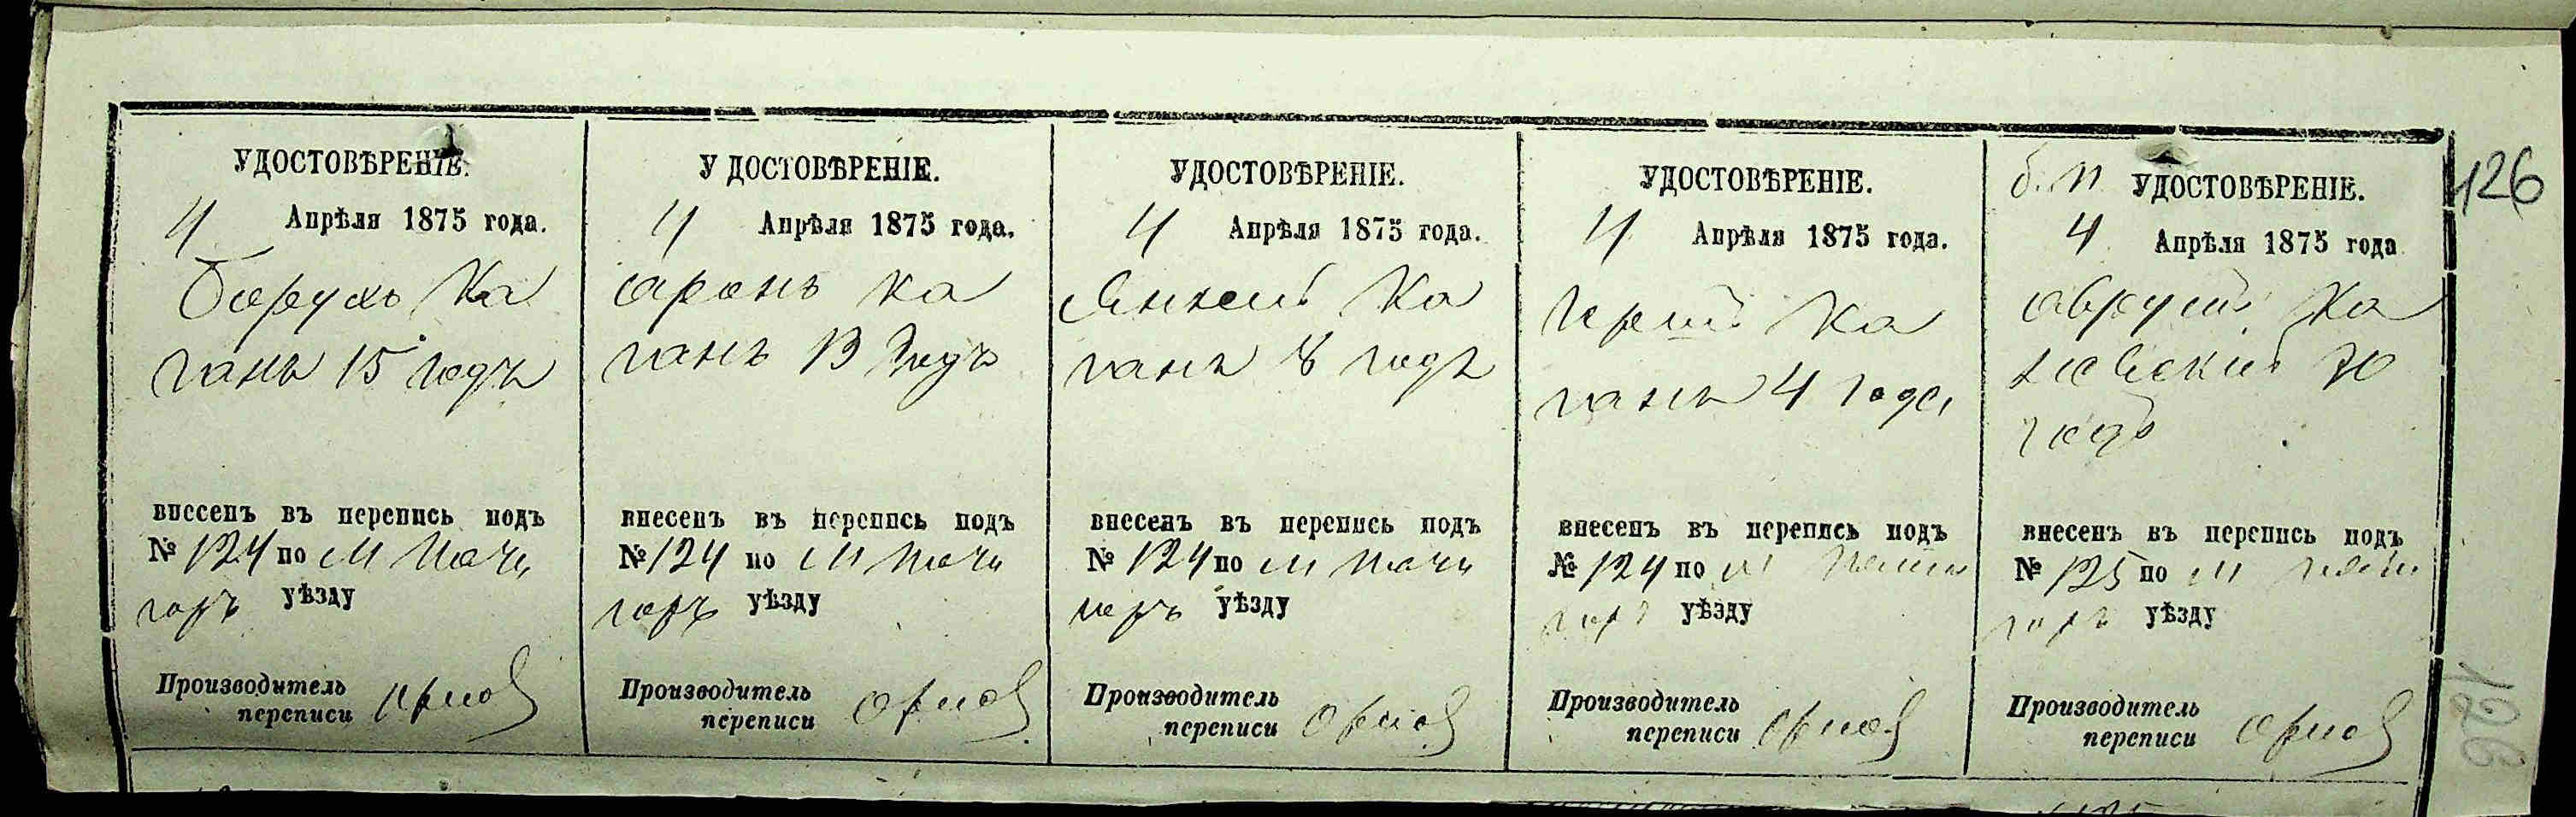 126
УДОСТОВѢРЕНІЕ.
4 Апрѣля 1875 года.
Борухъ Ка
ганъ 15 годъ
внесенъ въ перепись подъ
№ 124 по М
горъ уѣзду
Производитель
переписи
УДОСТОВѢРЕНІЕ.
4 Апрѣля 1875 года.
Аронъ Ка
ганъ 13 годъ
внесенъ въ перепись подъ
№ 124 по М
горъ уѣзду
Производитель
переписи
УДОСТОВѢРЕНІЕ.
4 Апрѣля 1875 года.
Янкель Ка
ганъ 8 годъ
внесенъ въ перепись подъ
№ 124 по М
горъ уѣзду
Производитель
переписи
УДОСТОВѢРЕНІЕ.
4 Апрѣля 1875 года.
Ка
ганъ 4 года
внесенъ въ перепись подъ
№ 124 по М
горъ уѣзду
Производитель
переписи
УДОСТОВѢРЕНІЕ.
4 Апрѣля 1875 года
Ка
годъ
внесенъ въ перепись подъ
№ 125 по М
горъ уѣзду
Производитель
переписи
126